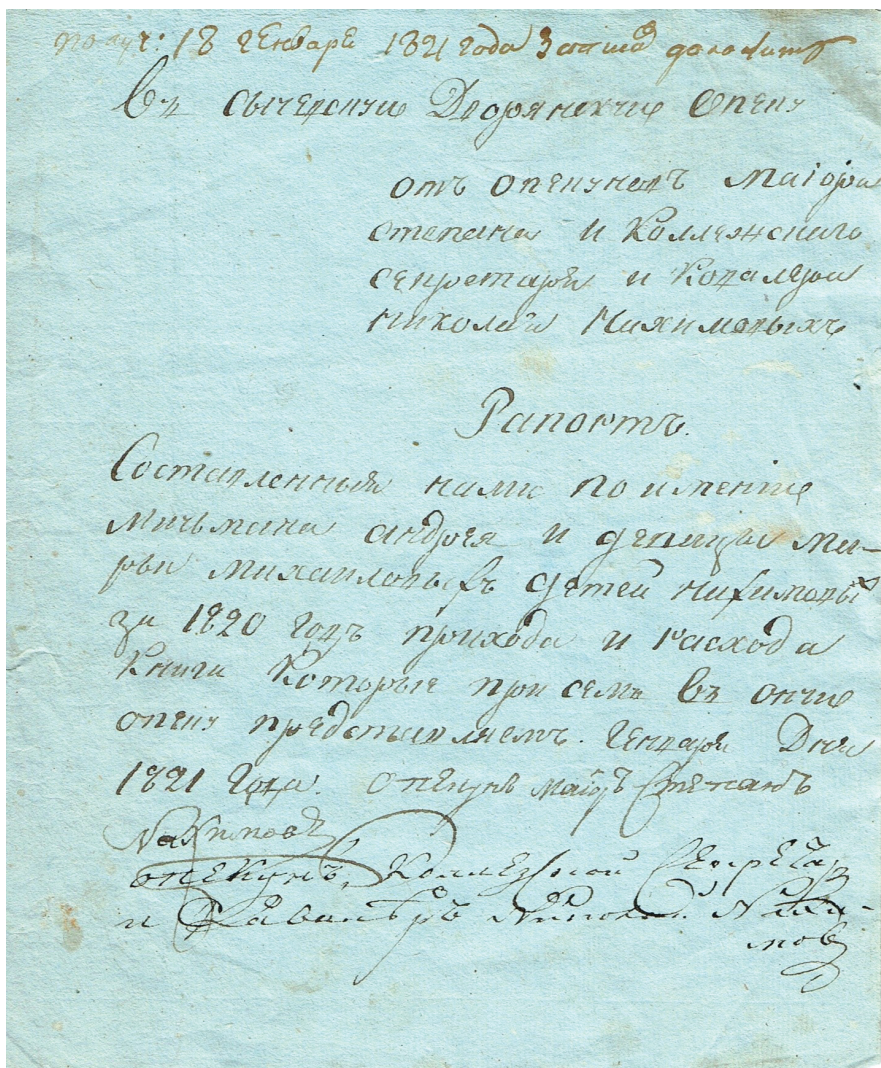 получ: 18 генваря 1821 года Записав доложить
Въ сычевскую Дворянскую Опеку
отъ опекуновъ Маіора
степана и Коллежскаго
секретаря и Кавалера
Николая Нахимовыхъ
Рапортъ.
Составленныя нами по именію
Мичьмана андрея и девицы ма-
рьи михаиловыхъ детей нахимовых
за 1820 годъ прихода и расхода
Книги Которые при семъ въ оную
опеку представляемъ. Генваря Дня
1821 года. опекунъ маіоръ Степанъ
Нахимовъ
опекунъ, Коллежской Секретарь
и Кавалеръ Николай Нахи-
мовъ